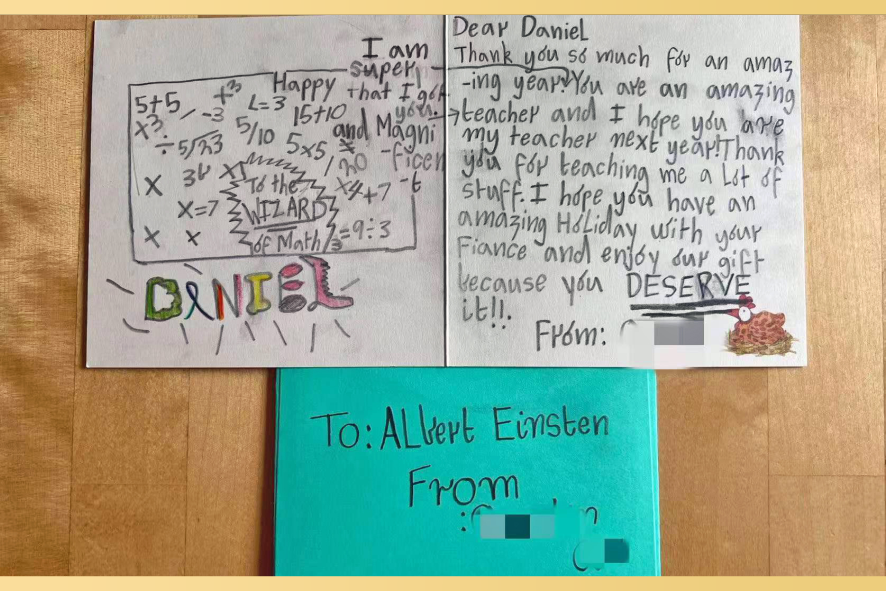 I am
super
Happy
that I got
you.
and Magni
-ficen
-t
5+5
+³
-3
L=3
15+10
x³
÷
5/10
5x5
x
36
x1
/20
x4+7
To the
WIZARD
of Math
x=7
=9÷3
x x
DaNIEL
Dear Daniel
Thank you so much for an amaz
-ing year? You are an amazing
teacher and I hope you are
my teacher next year! Thank
you for teaching me a Lot of
stuff. I hope you have an
amazing Holiday with your
Fiance and enjoy our gift
because you DESERVE
it!!.
From:
To: ALbert Einsten
From
: